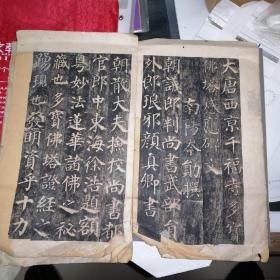 大唐西京千福寺多寶
佛塔感應碑文
南陽岑勛撰
朝議郎判尚書武部員
外郎琅邪顏真卿書
朝散大夫檢校尚書都
官郎中東海徐浩題額
粵妙法蓮華諸佛之秘
藏也多寶佛塔證經之
踴現也發明資乎十力